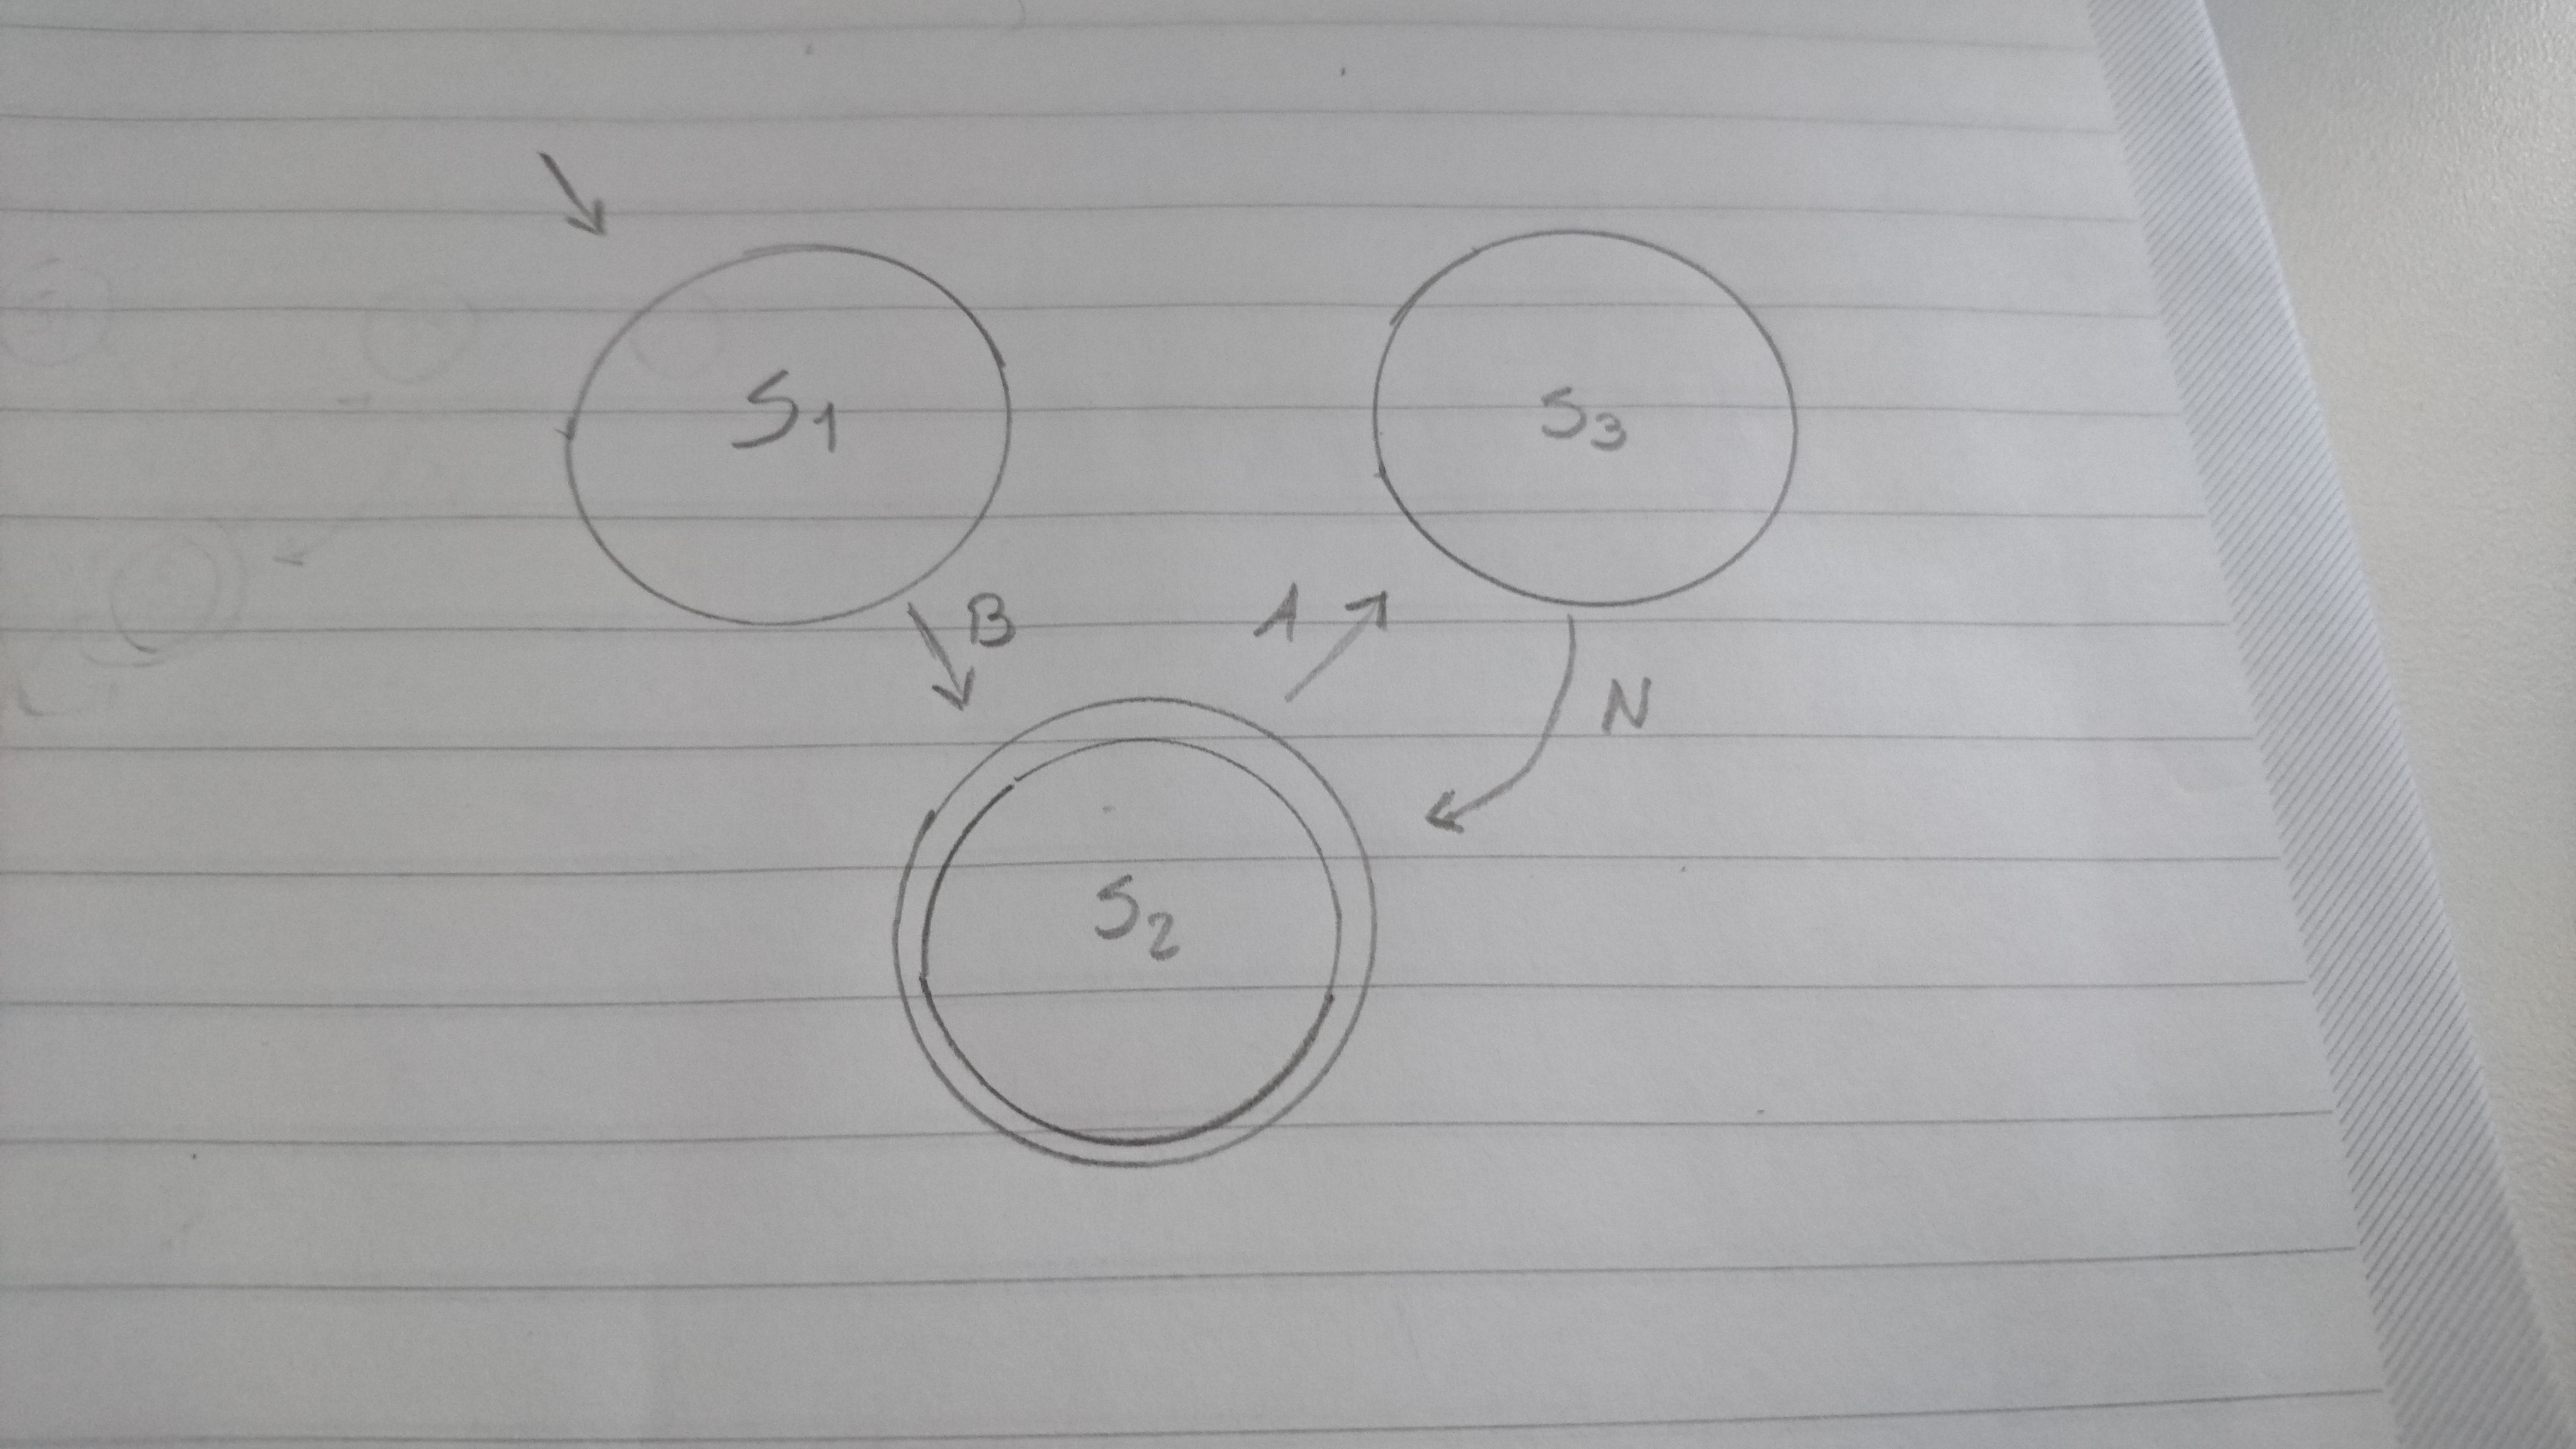 S1
S3
B
A
N
S2